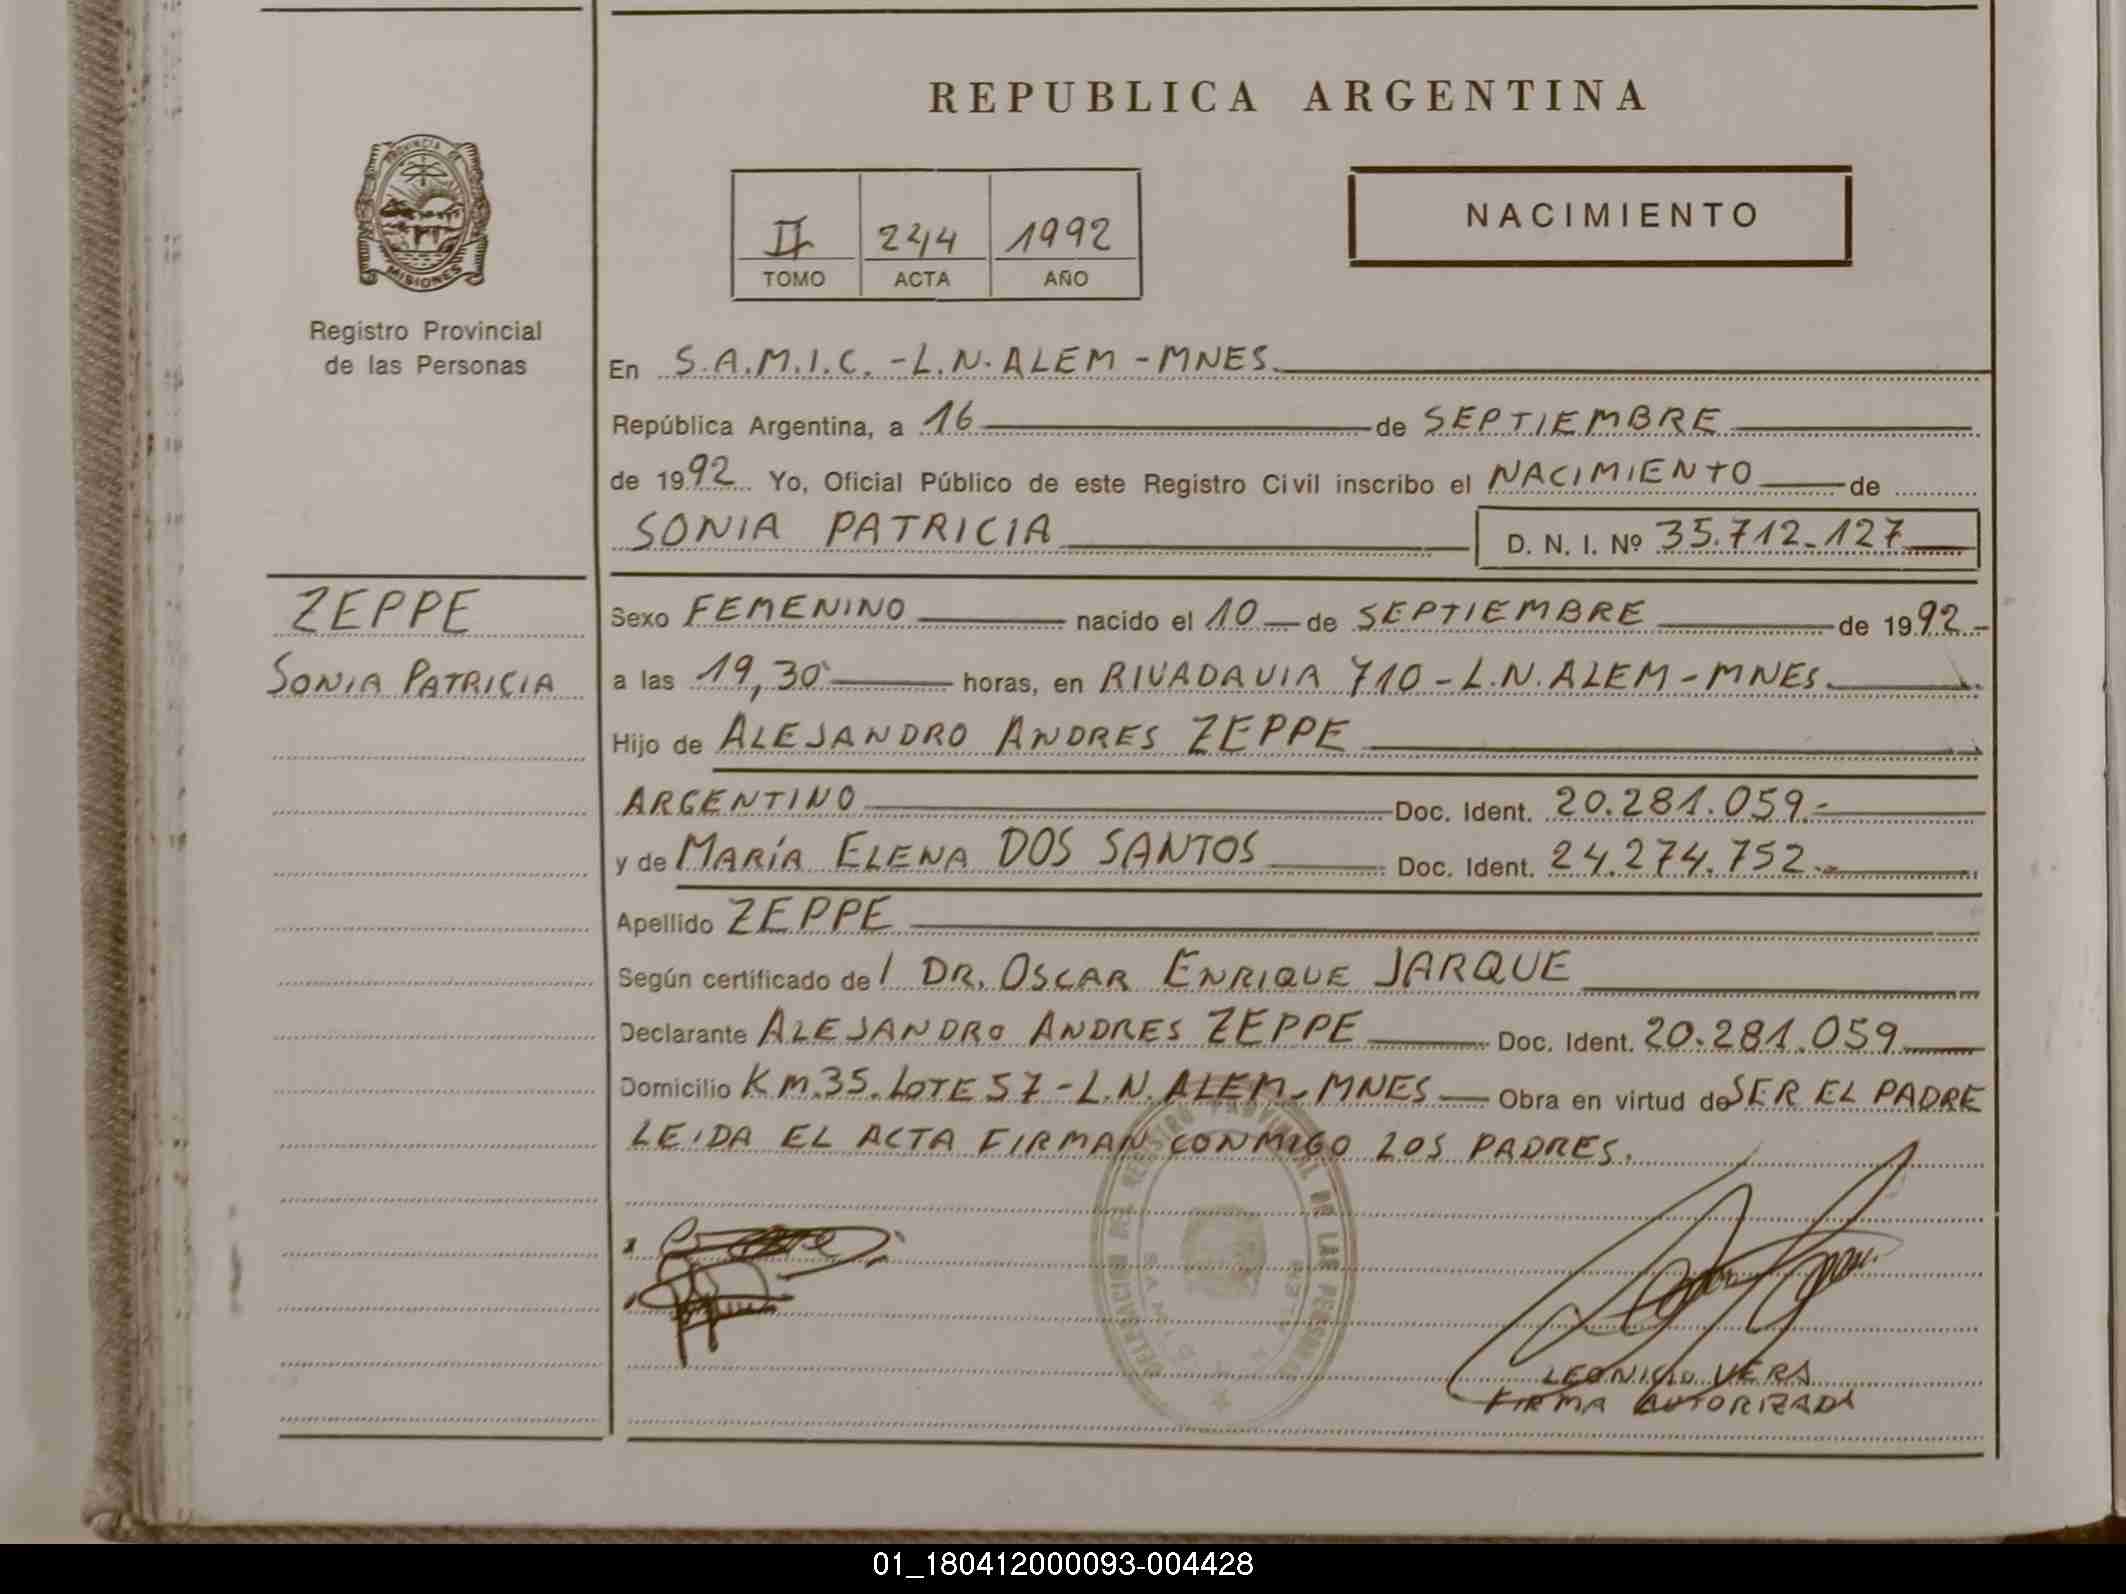 REPUBLICA ARGENTINA
PROVINCIA DE
MISIONES
Registro Provincial
de las Personas
II 244 1992
TOMO ACTA AÑO
NACIMIENTO
En S.A.M.I.C. - L.N. ALEM - MNES.
República Argentina, a 16 de SEPTIEMBRE
de 1992 Yo, Oficial Público de este Registro Civil inscribo el NACIMIENTO de
SONIA PATRICIA D. N. I. Nº 35.712.127
ZEPPE
SONIA PATRICIA
Sexo FEMENINO nacido el 10 de SEPTIEMBRE de 1992.-
a las 19,30 horas, en RIVADAVIA 710 - L.N. ALEM - MNES.
Hijo de ALEJANDRO ANDRES ZEPPE
ARGENTINO Doc. Ident. 20.281.059.-
y de MARÍA ELENA DOS SANTOS Doc. Ident. 24.274.752.-
Apellido ZEPPE
Según certificado de l DR. OSCAR ENRIQUE JARQUE
Declarante ALEJANDRO ANDRES ZEPPE Doc. Ident. 20.281.059
Domicilio KM.35. LOTE 57 - L.N. ALEM - MNES Obra en virtud de SER EL PADRE
LEIDA EL ACTA FIRMAN CONMIGO LOS PADRES.
DELEGACION DEL REGISTRO PROVINCIAL DE LAS PERSONAS
LEONICIO VERA
FIRMA AUTORIZADA
01_180412000093-004428